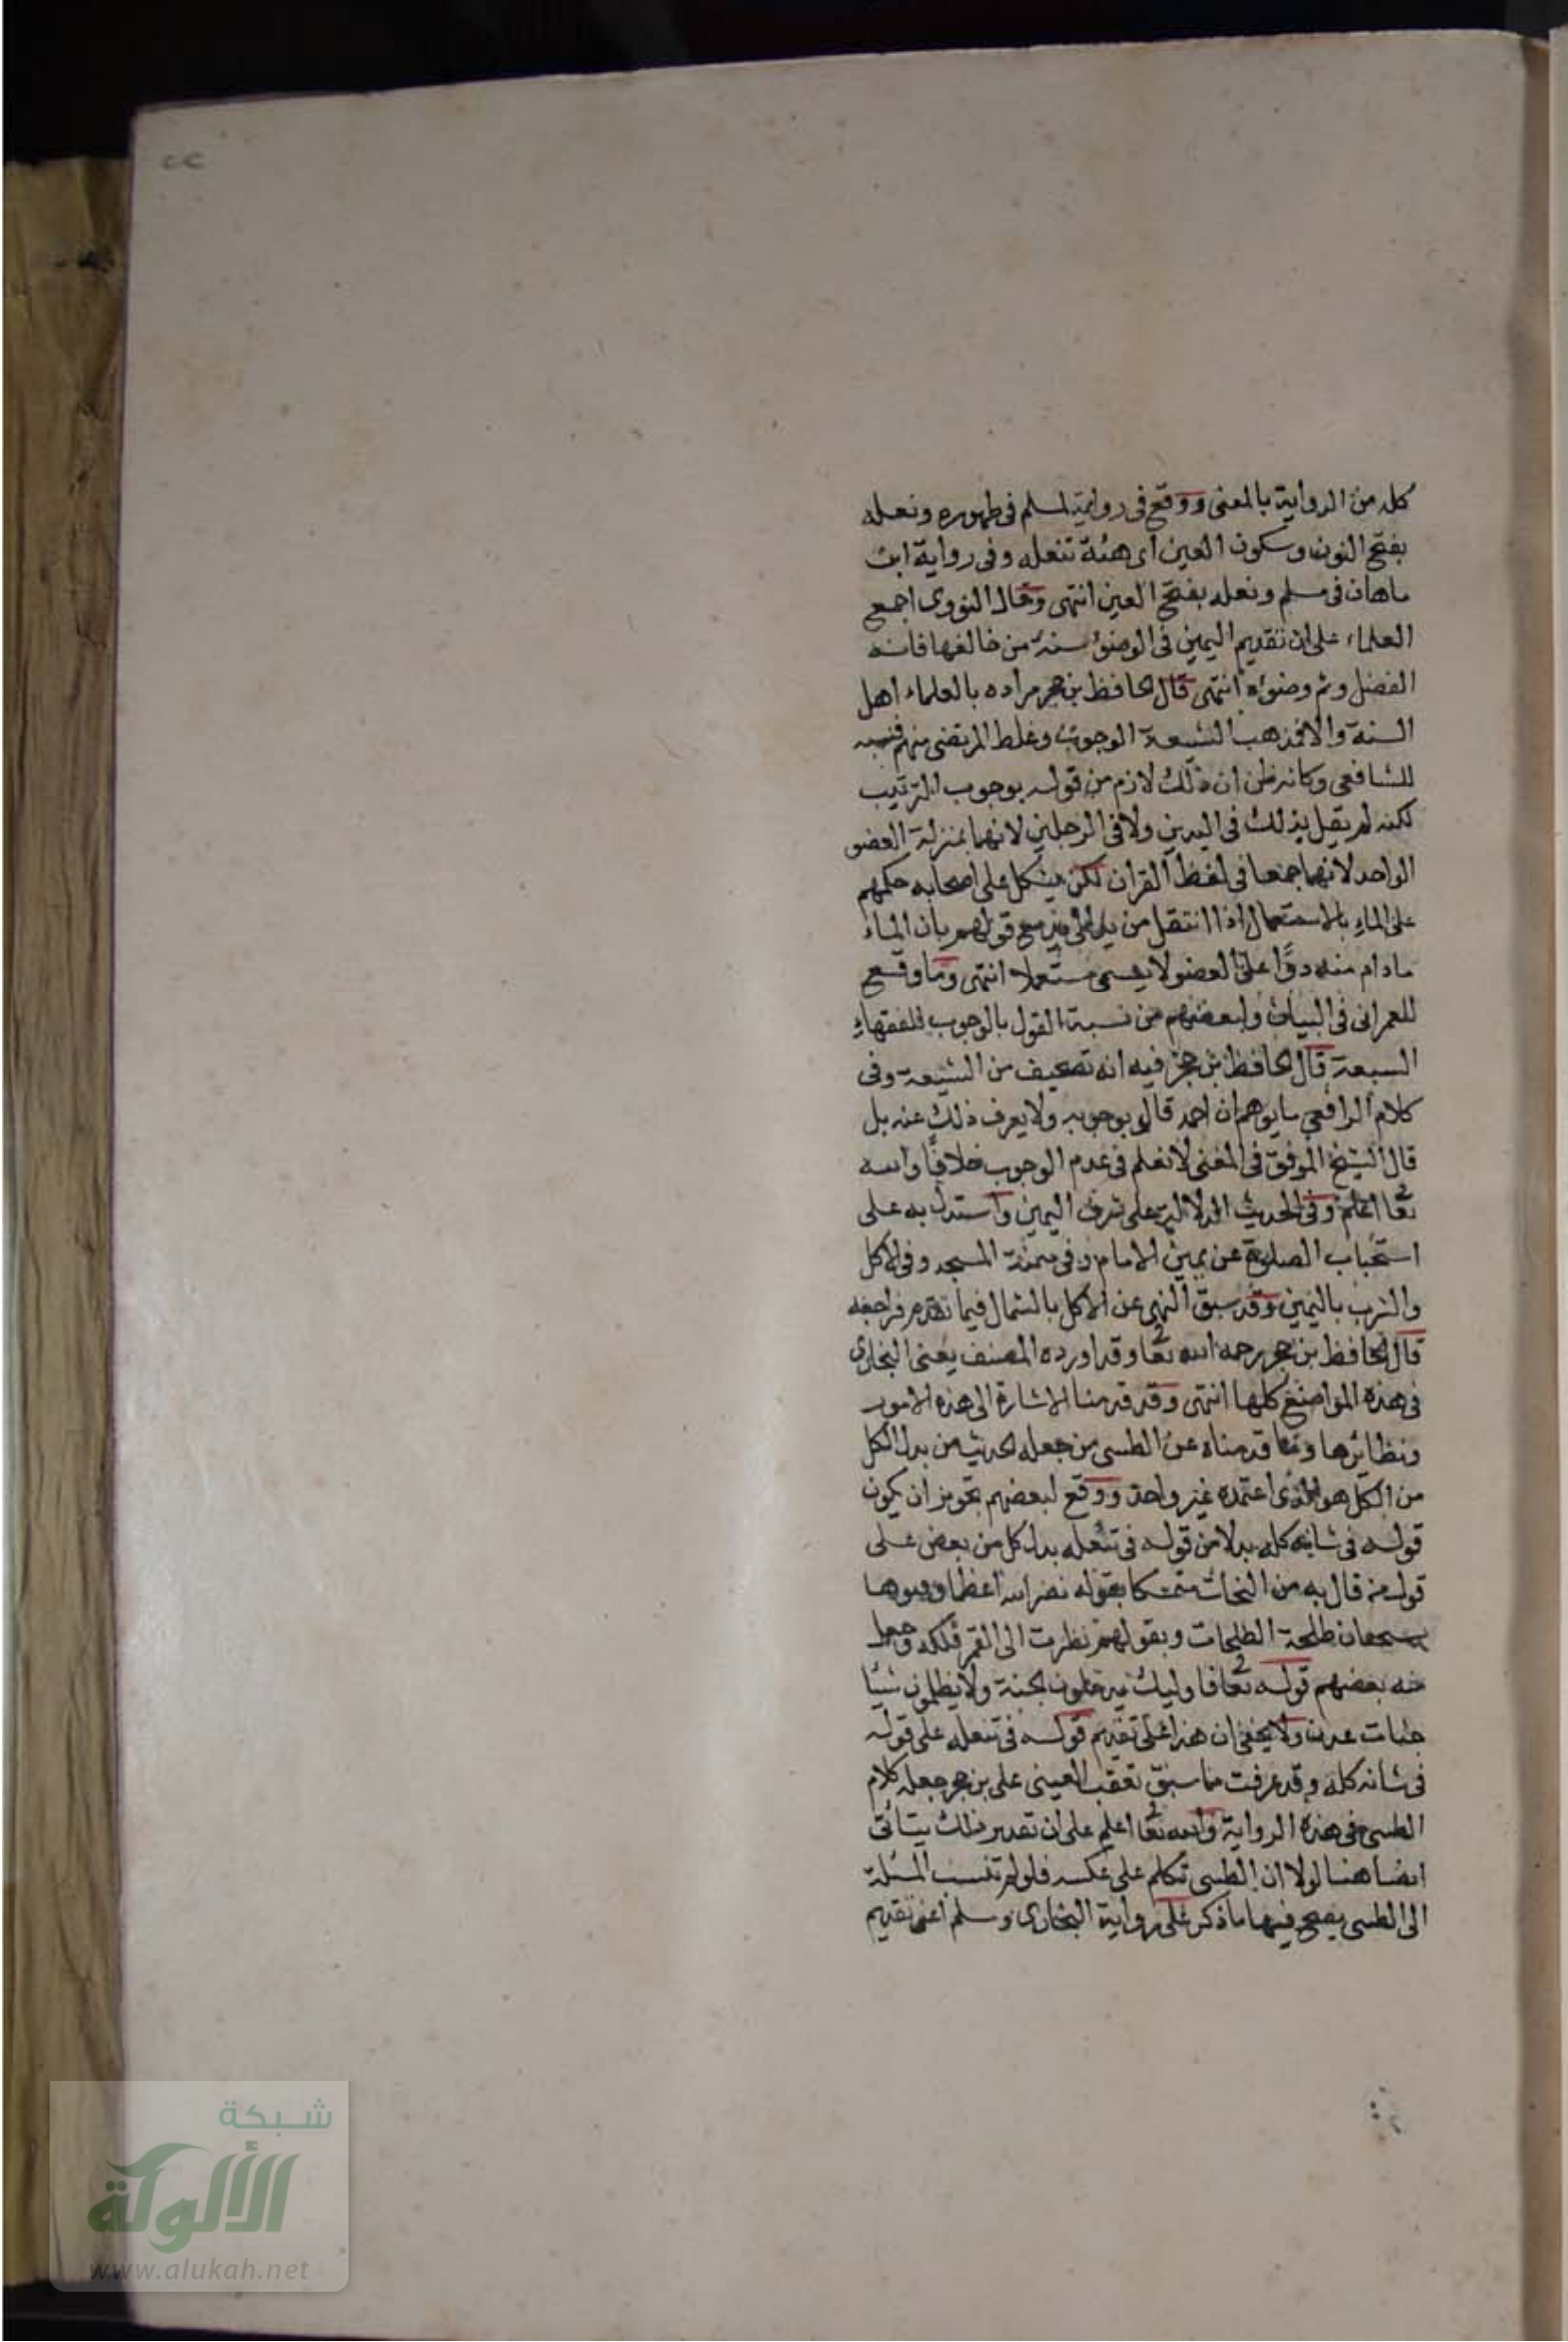 ٢٢
كله من الرواية بالمعنى ووقع في رواية لمسلم في طهوره ونعله
بفتح النون وسكون العين اى هئة تنعله وفي رواية ابن
ماهان في مسلم ونعله بفتح العين انتهى وقال النووى اجمع
العلماء على ان تقديم اليمين في الوضوء سنة من خالفها فاته
الفضل وتم وضوءه انتهى قال الحافظ بن حجر مراده بالعلماء اهل
السنة والا فمذهب الشيعة الوجوب وغلط المرتضى منهم فنسبه
للشافعى وكانه ظن ان ذلك لازم من قوله بوجوب الترتيب
لكنه لم يقل بذلك في اليدين ولا في الرجلين لانهما بمنزلة العضو
الواحد لانهما جمعا في لفظ القران لكن يشكل على اصحابه حكمهم
على الماء بالاستعمال اذا انتقل من يد الى يد مع قولهم بان الماء
مادام مترددا على العضو لا يسمى مستعملا انتهى وما وقع
للعمرانى في البيان ولبعضهم من نسبة القول بالوجوب للفقهاء
السبعة قال الحافظ بن حجر فيه انه تصحيف من الشيعة وفي
كلام الرافعى ما يوهم ان احمد قال بوجوبه ولا يعرف ذلك عنه بل
قال الشيخ الموفق في المغنى لا نعلم في عدم الوجوب خلافا والله
تعا اعلم وفي الحديث الدلالة على شرف اليمين واستدل به على
استحباب الصلوة عن يمين الامام وفي ميمنة المسجد وفي الاكل
والشرب باليمين وقد سبق النهى عن الاكل بالشمال فيما تقدم فراجعه
قال الحافظ بن حجر رحمه الله تعا وقد اورده المصنف يعنى البخارى
في هذه المواضع كلها انتهى وقد قدمنا الاشارة الى هذه الامور
ونظائرها وما قدمناه عن الطيبى من جعله الحديث من بدل الكل
من الكل هو الذى اعتمده غير واحد ووقع لبعضهم تجويز ان يكون
قوله في شانه كله بدلا من قوله في تنعله بدل كل من بعض على
قول من قال به من النحات متمسكا بقوله نضر الله اعظما دفنوها
بسجستان طلحة الطلحات وبقولهم نظرت الى القمر فلكه وجعل
منه بعضهم قوله تعا فاوليك يدخلون الجنة ولا يظلمون شيئا
جنات عدن ولا يخفى ان هذا على تقديم قوله في تنعله على قوله
في شانه كله وقد عرفت مما سبق تعقب العينى على بن حجر جعله كلام
الطيبى في هذه الرواية والله تعا اعلم على ان تقدير ذلك يتأتى
ايضا هنا لولا ان الطيبى تكلم على عكسه فلو لم تنسب المسئلة
الى الطيبى يصح فيها ما ذكر على رواية البخارى ومسلم اعنى تقديم
شبكة
الألوكة
www.alukah.net